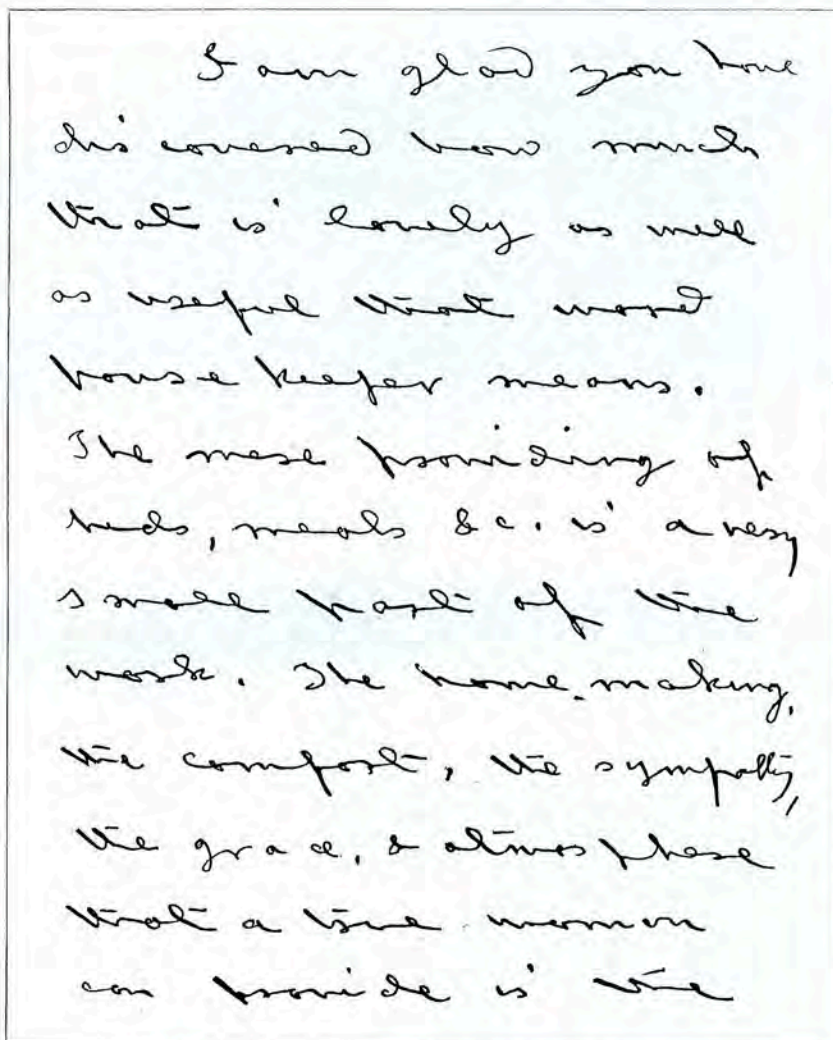 I am glad you have
discovered how much
that is lovely as well
as useful that word
house keeper means.
The mere providing of
beds, meals &c. is a very
small part of the
work. The home-making,
the comfort, the sympathy,
the grace, & atmosphere
that a true woman
can provide is the